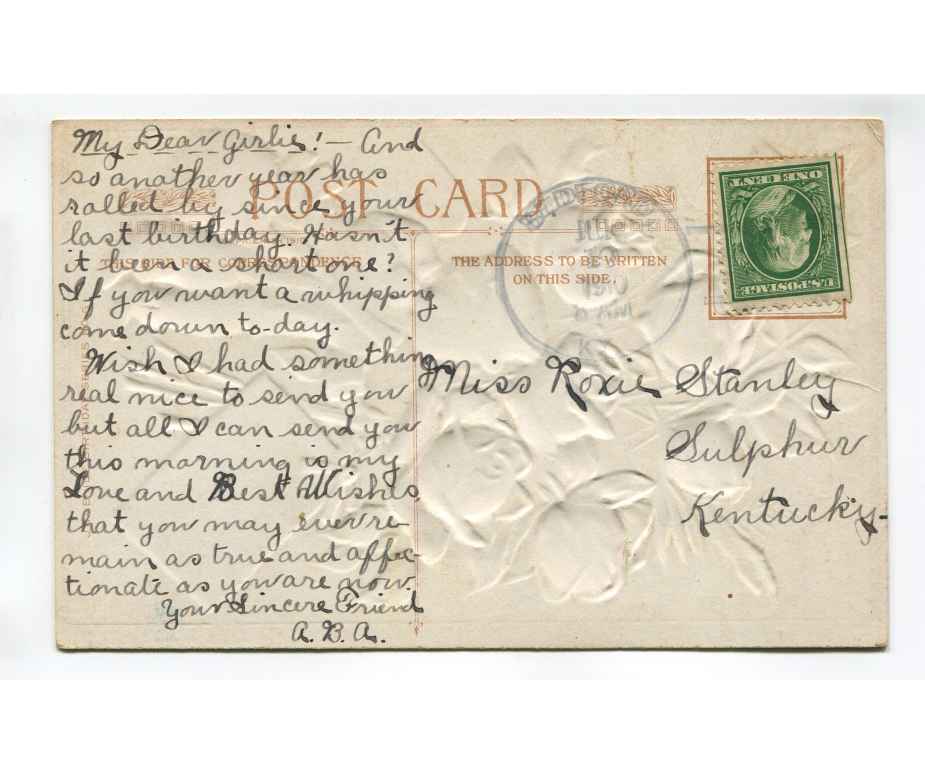 My Dear Girlie! — And
so another year has
rolled by since your
last birthday. Hasn't
it been a short one?
If you want a whipping
come down to-day.
Wish I had somethin
real nice to send you
but all I can send you
this morning is my
Love and Best Wishes
that you may ever re
main as true and affec-
tionate as you are now.
Your Sincere Friend
A. B. A.
POST CARD
THIS SIDE FOR CORRESPONDENCE
THE ADDRESS TO BE WRITTEN
ON THIS SIDE.
1910
Miss Roxie Stanley
Sulphur
Kentucky
U.S. POSTAGE
ONE CENT